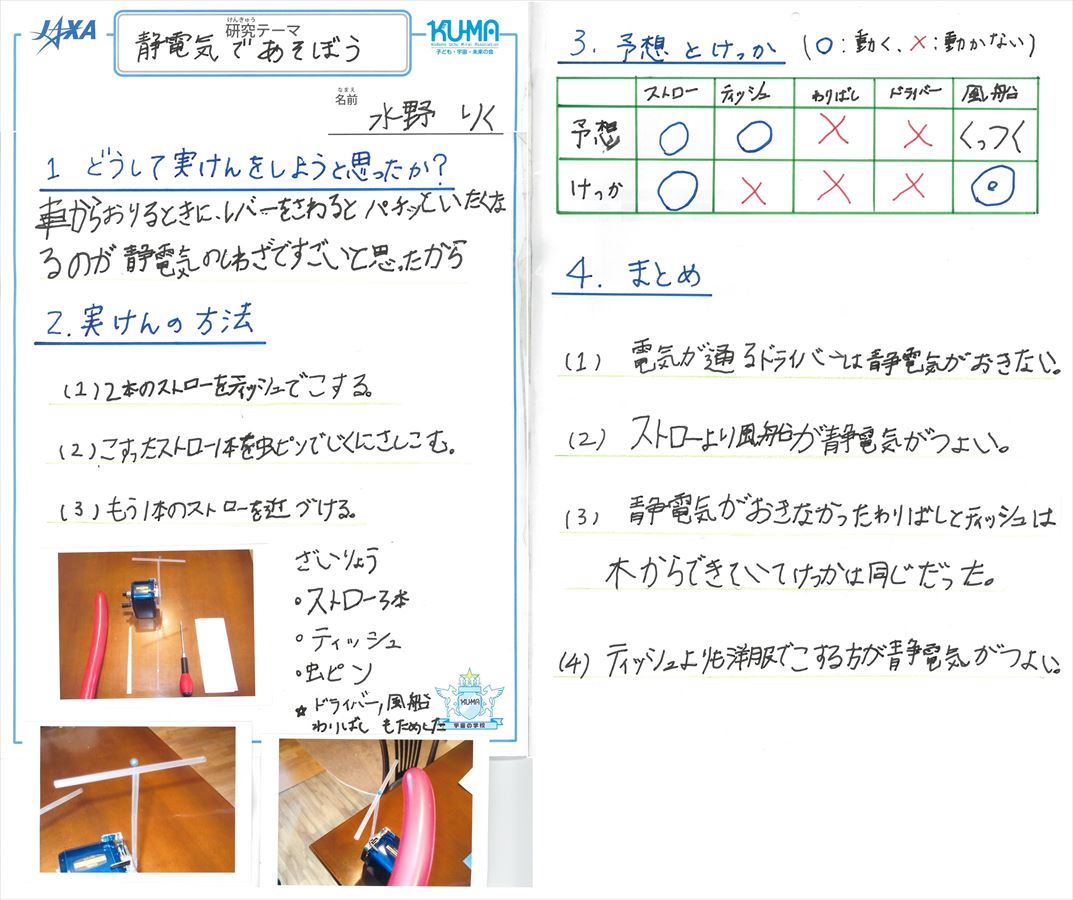 JAXA
研究テーマ
けんきゅう
静電気であそぼう
KUMA
Kodomo Uchu Mirai Association
子ども・宇宙・未来の会
なまえ
名前
水野 りく
1 どうして実けんをしようと思ったか?
車からおりるときに、レバーをさわるとパチッといたくな
るのが静電気のしわざですごいと思ったから
2.実けんの方法
(1)2本のストローをティッシュでこする。
(2)こすったストロー1本を虫ピンでじくにさしこむ。
(3)もう1本のストローを近づける。
ざいりょう
・ストロー3本
・ティッシュ
・虫ピン
☆ドライバー,風船
わりばし もためした
KUMA
宇宙の学校
3.予想とけっか (○:動く、×:動かない)
ストロー ティッシュ わりばし ドライバー 風船
予想 ○ ○ × × くっつく
けっか ○ × × × ◎
4.まとめ
(1) 電気が通るドライバーは静電気がおきない。
(2) ストローより風船が静電気がつよい。
(3) 静電気がおきなかったわりばしとティッシュは
木からできていてけっかは同じだった。
(4) ティッシュよりも洋服でこする方が静電気がつよい。